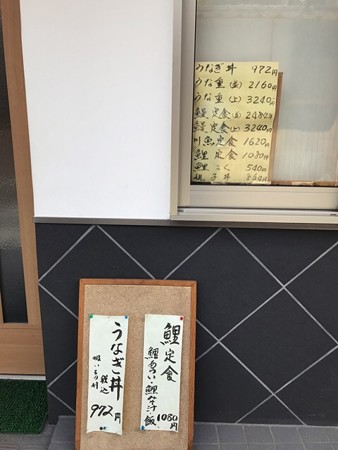 うなぎ丼 972円
うな重(並) 2160円
うな重(上) 3240円
定食(並) 2484円
定食(上) 3240円
川魚定食 1620円
鯉定食 1080円
鯉こく 540円
丼 864円
鯉定食
鯉あらい・鯉こく
飯
1080円
うなぎ丼
吸いもの付
税込
972円